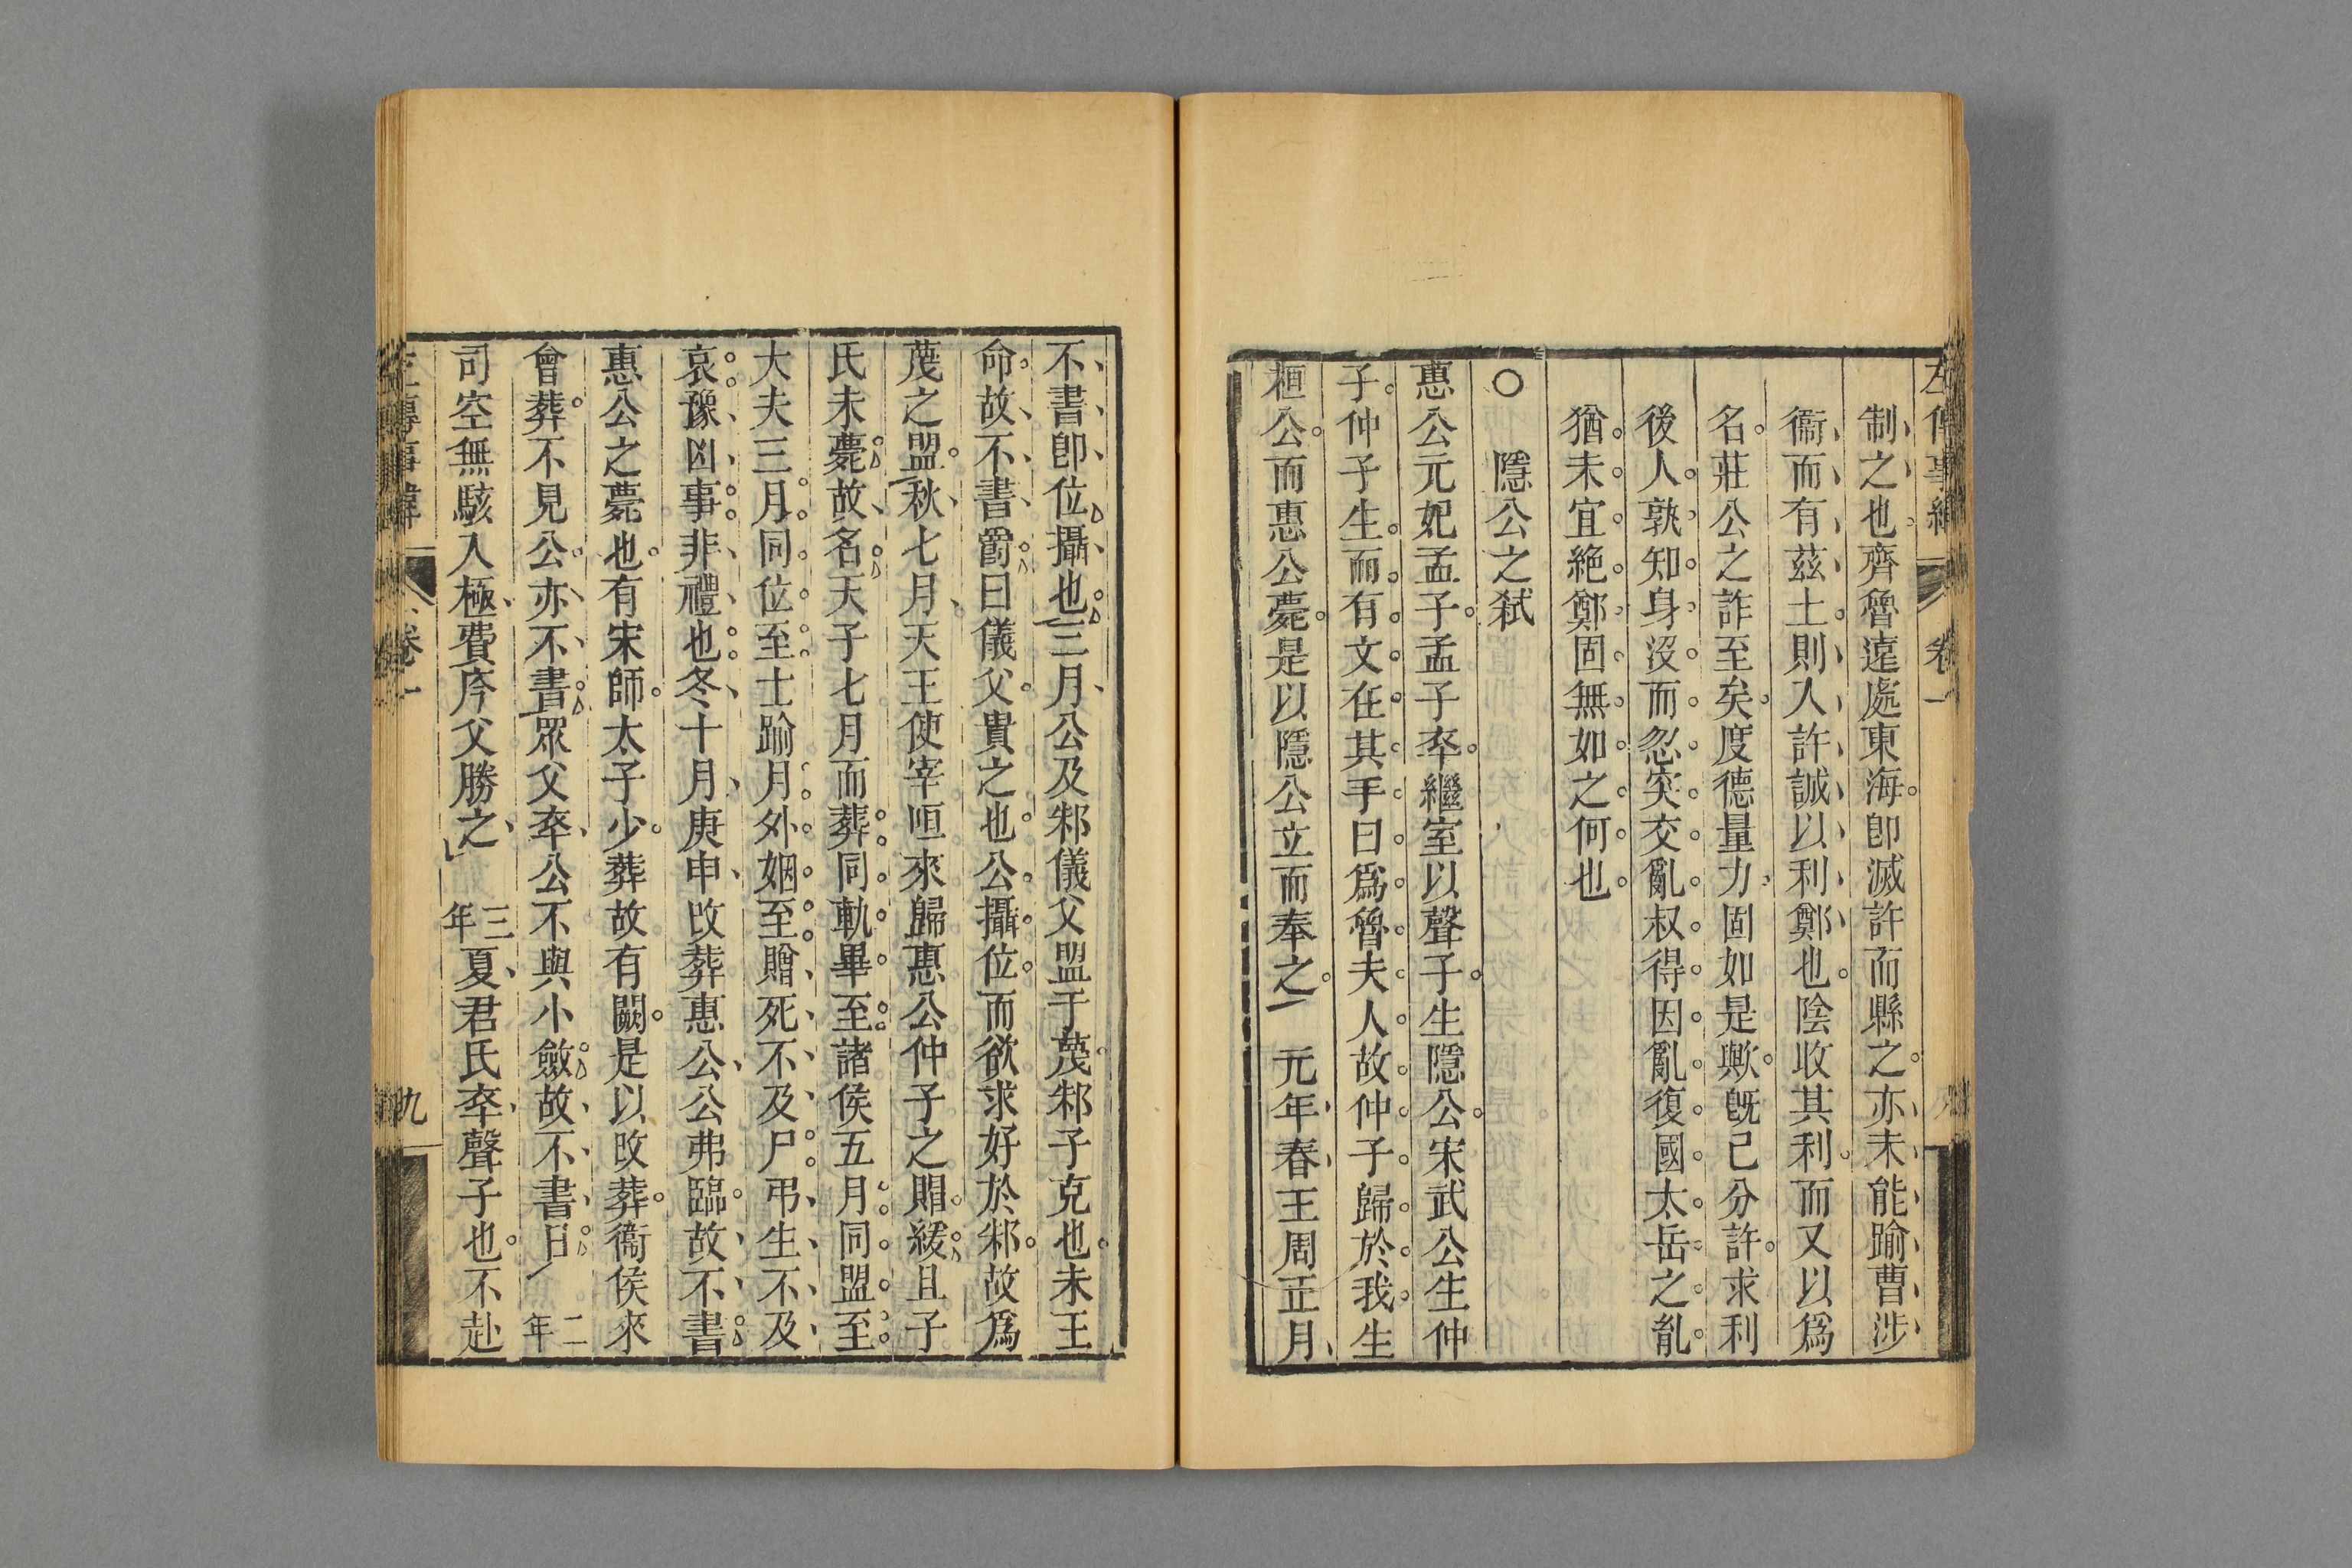 左傳事緯 卷一
制之也齊魯遠處東海卽滅許而縣之亦未能踰曹涉
衞而有茲土則入許誠以利鄭也陰收其利而又以爲
名莊公之詐至矣度德量力固如是歟旣已分許求利
後人孰知身沒而忽突交亂叔得因亂復國太岳之胤
猶未宜絶鄭固無如之何也
○ 隱公之弑
惠公元妃孟子孟子卒繼室以聲子生隱公宋武公生仲
子仲子生而有文在其手曰爲魯夫人故仲子歸於我生
桓公而惠公薨是以隱公立而奉之 元年春王周正月
不書卽位攝也三月公及邾儀父盟于蔑邾子克也未王
命故不書爵曰儀父貴之也公攝位而欲求好於邾故爲
蔑之盟秋七月天王使宰咺來歸惠公仲子之賵緩且子
氏未薨故名天子七月而葬同軌畢至諸侯五月同盟至
大夫三月同位至士踰月外姻至贈死不及尸弔生不及
哀豫凶事非禮也冬十月庚申改葬惠公公弗臨故不書
惠公之薨也有宋師太子少葬故有闕是以改葬衞侯來
會葬不見公亦不書眾父卒公不與小斂故不書日 二年
司空無駭入極費庈父勝之 三年夏君氏卒聲子也不赴
左傳事緯 卷一 九